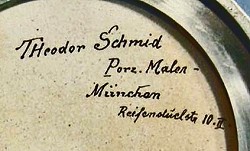 Theodor Schmid
Porz. Maler-
München
Reifenstuelstr 10.II